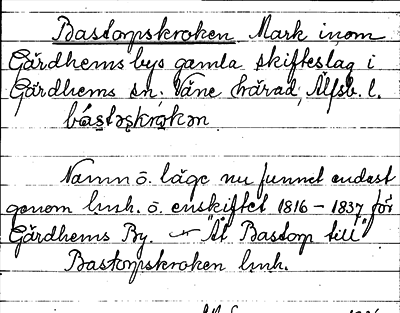 Bastorpskroken Mark inom
Gärdhems bys gamla skifteslag i
Gärdhems sn. Väne härad, Älfsb. l.
bástəskrọkən
Namn o. läge nu funnet endast
genom lmh. o. enskiftet 1816 – 1837 för
Gärdhems By. "Åt Bastorp till"
Bastorpskroken lmh.